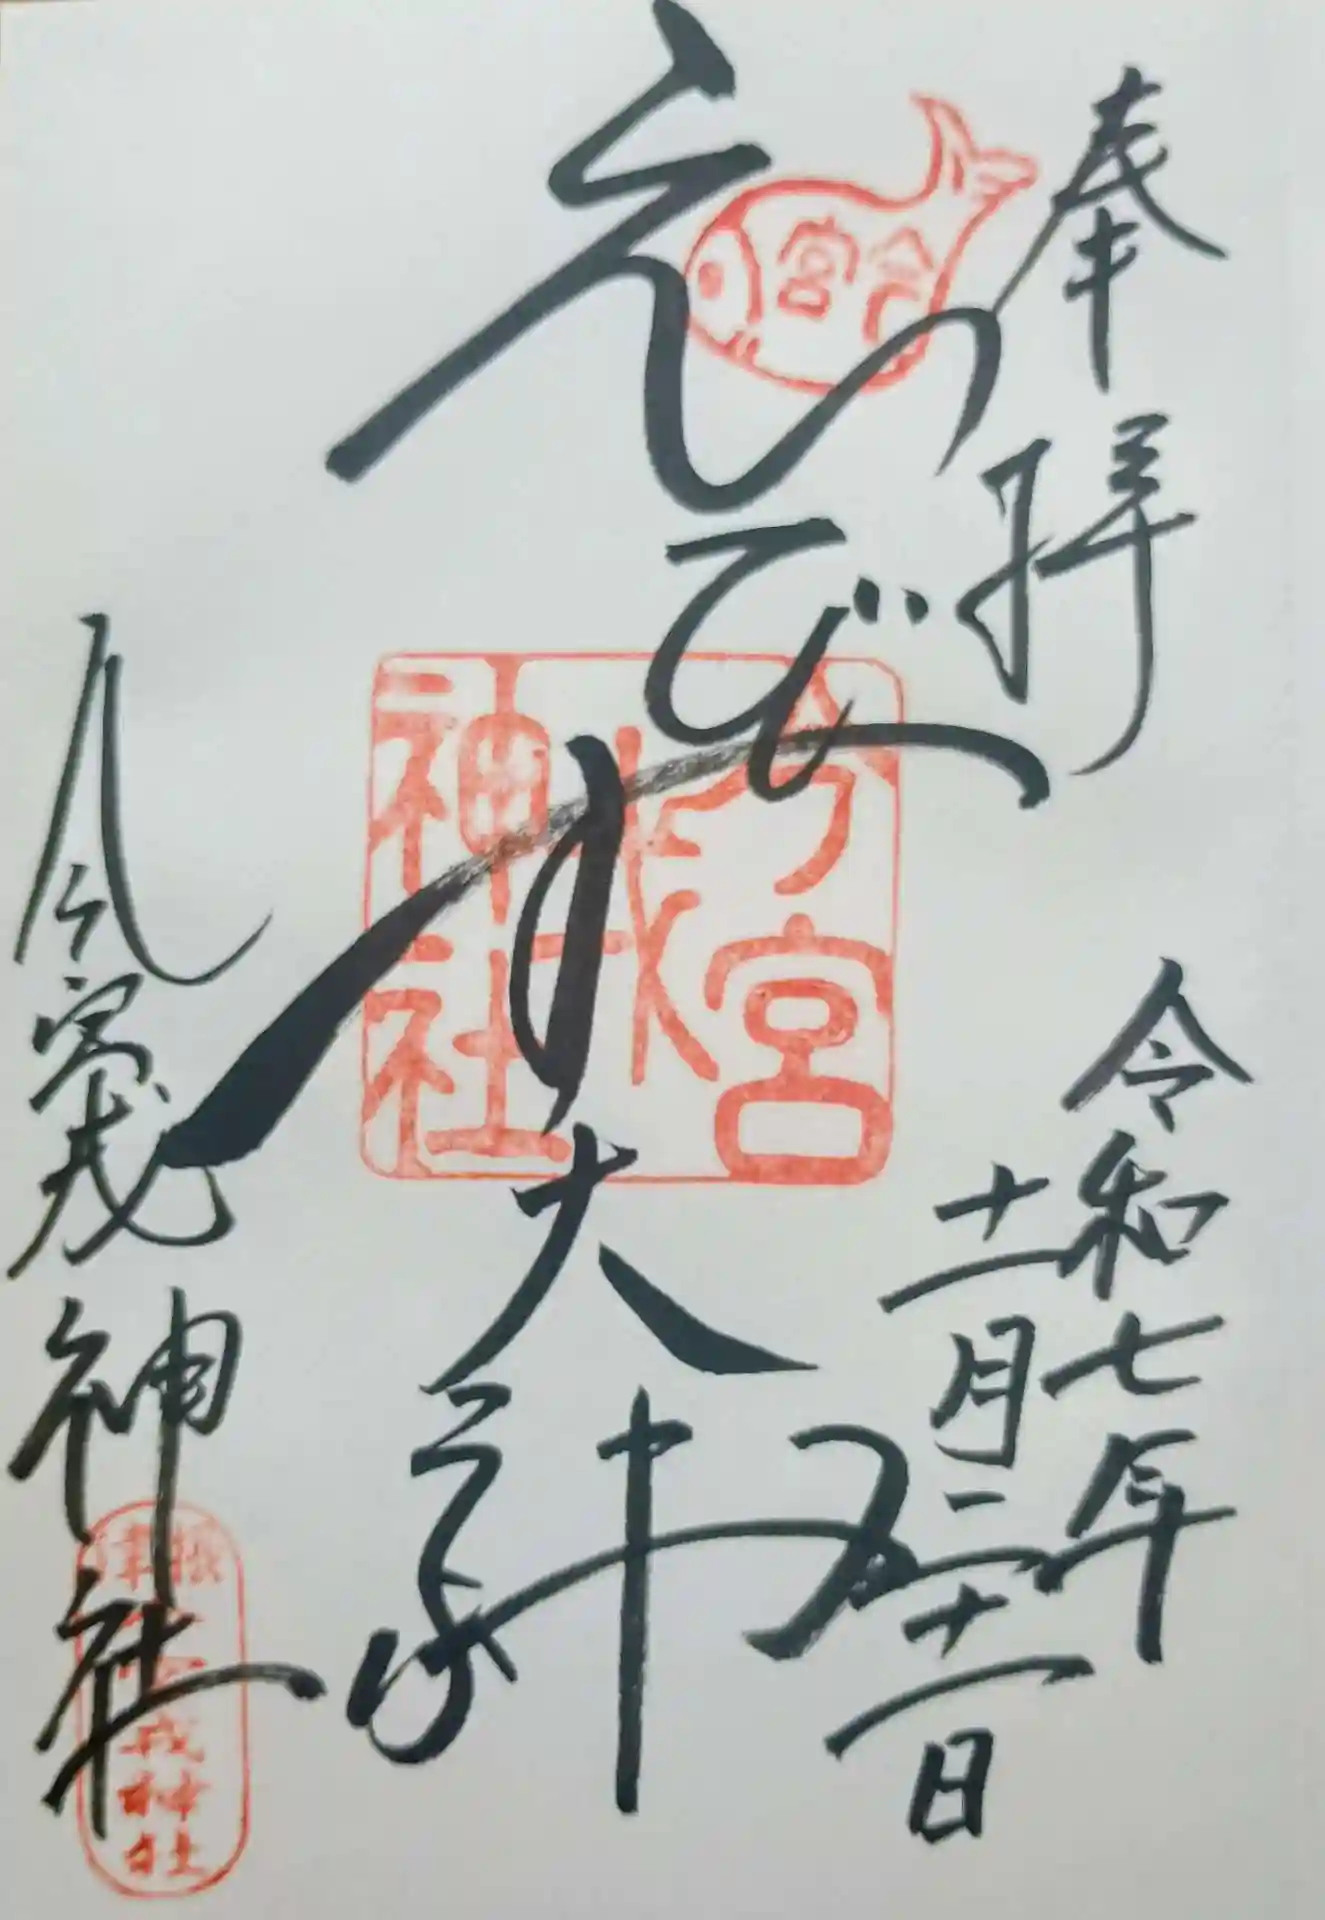 奉拝
令和七年
十一月二十一日
今宮
えびす大神
今宮
戎
神社
今宮戎神社
戎神社